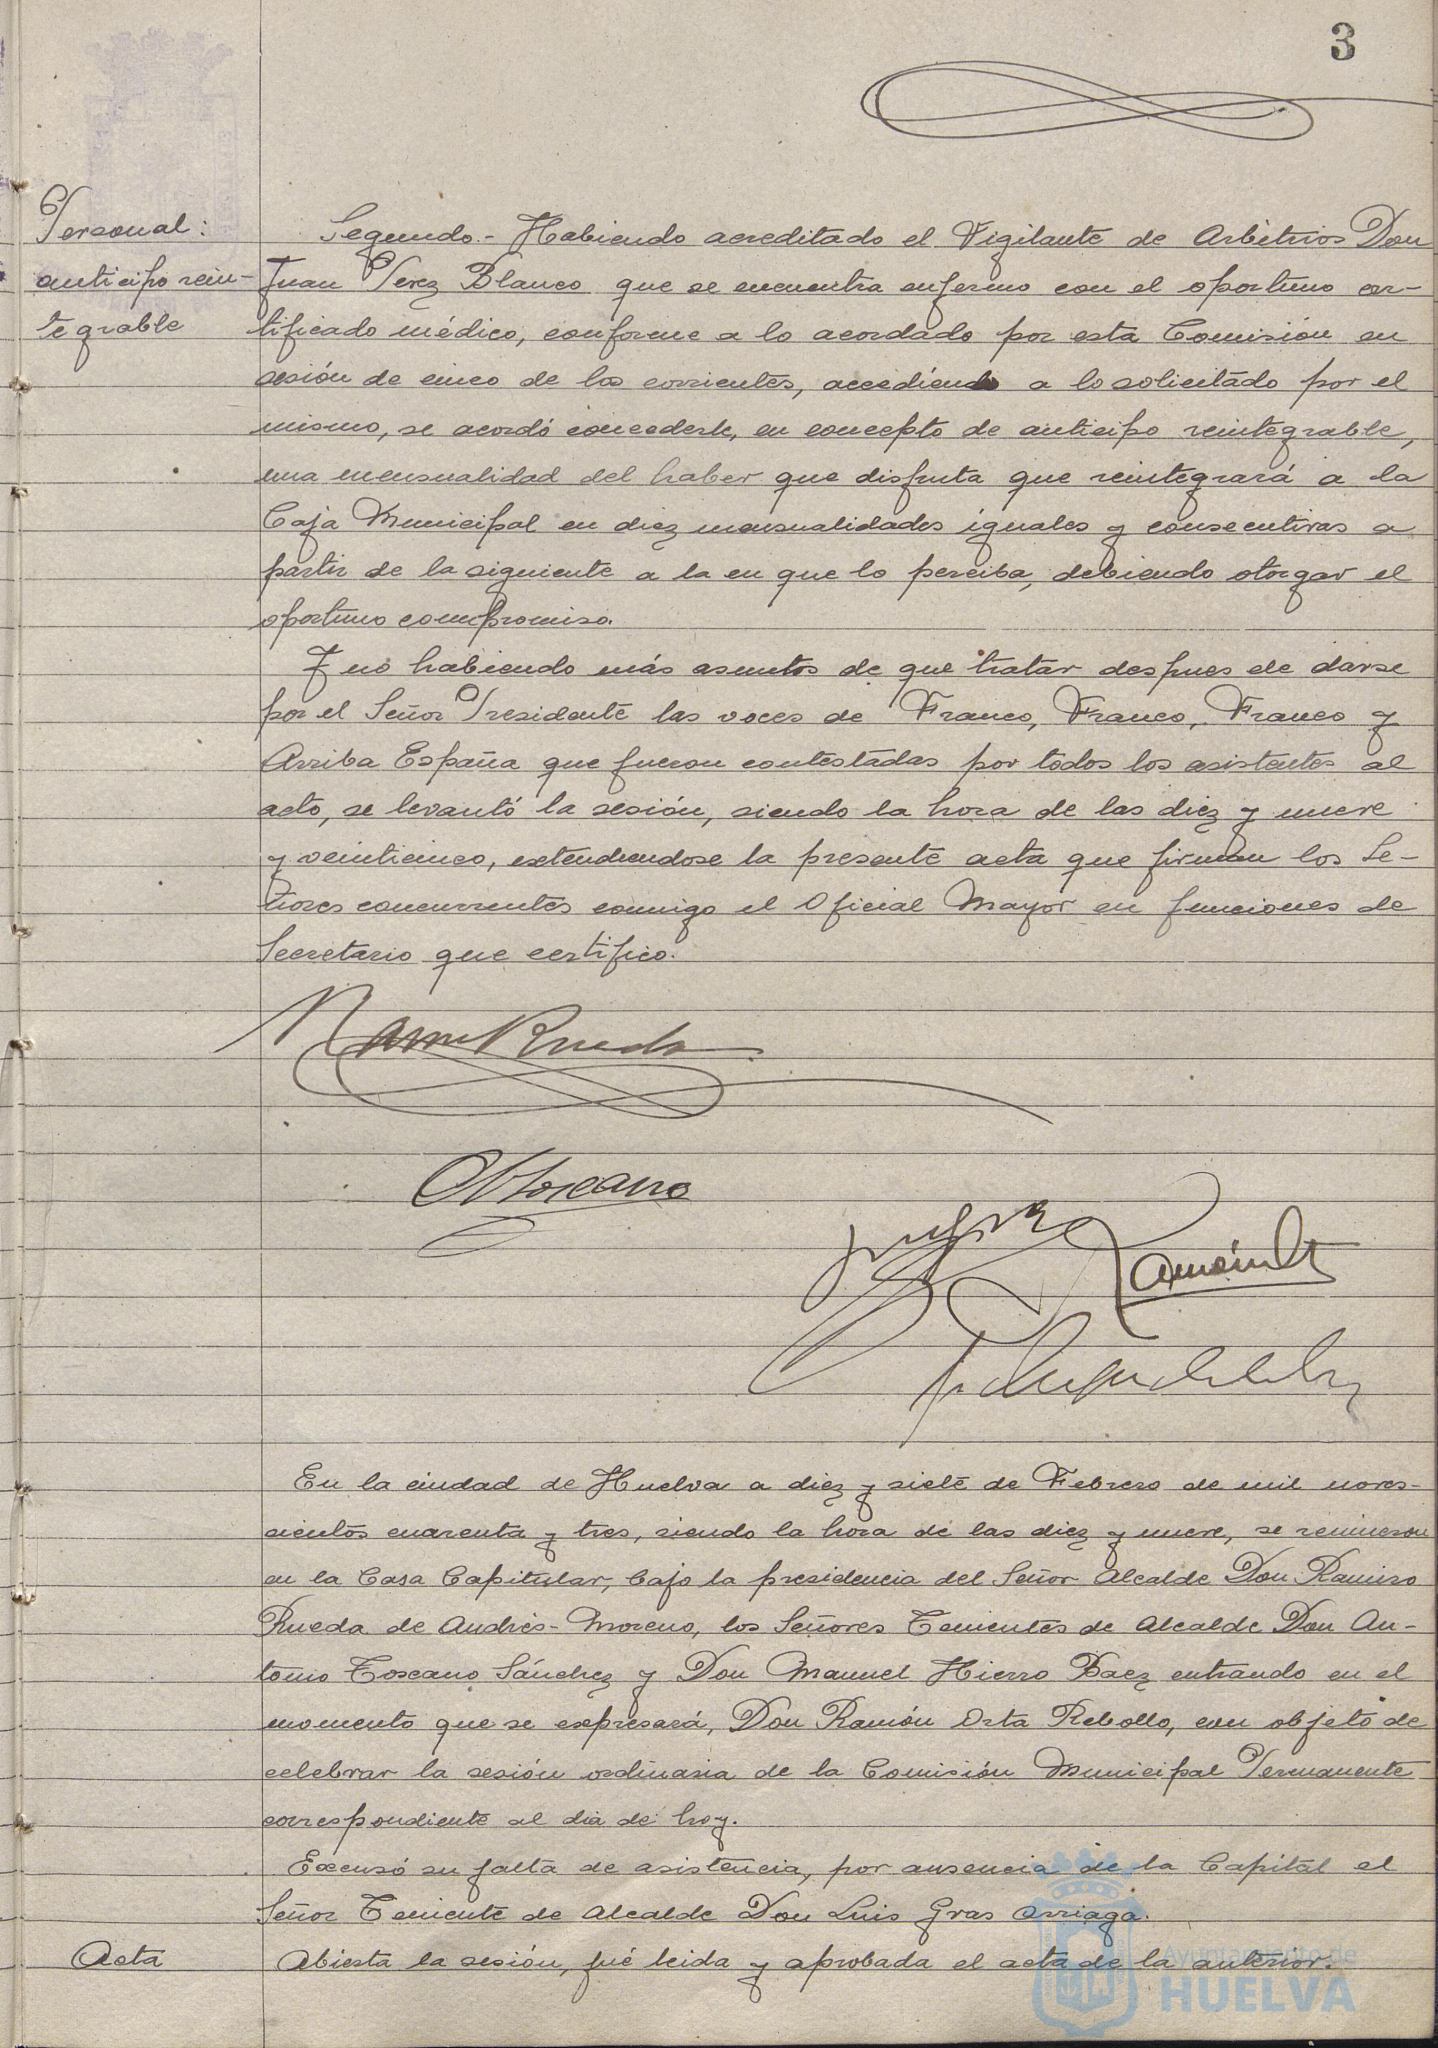 3
Personal:
anticipo rein-
tegrable
Segundo.- Habiendo acreditado el Vigilante de Arbitrios Don
Juan Perez Blanco que se encuentra enfermo con el oportuno cer-
tificado médico, conforme a lo acordado por esta Comisión en
sesión de cinco de los corrientes, accediendo a lo solicitado por el
mismo, se acordó concederle, en concepto de anticipo reintegrable,
una mensualidad del haber que disfruta que reintegrará a la
Caja Municipal en diez mensualidades iguales y consecutivas a
partir de la siguiente a la en que lo perciba, debiendo otorgar el
oportuno compromiso.
Y no habiendo más asuntos de que tratar despues de darse
por el Señor Presidente las voces de Franco, Franco, Franco y
Arriba España que fueron contestadas por todos los asistentes al
acto, se levantó la sesión, siendo la hora de las diez y nueve
y veinticinco, extendiendose la presente acta que firman los Se-
ñores concurrentes conmigo el Oficial Mayor en funciones de
Secretario que certifico.
Ram Rueda
A Toscano
En la ciudad de Huelva a diez y siete de Febrero de mil noves-
cientos cuarenta y tres, siendo la hora de las diez y nueve, se reunieron
en la Casa Capitular, bajo la presidencia del Señor Alcalde Don Ramiro
Rueda de Andrés-Moreno, los Señores Tenientes de Alcalde Don An-
tonio Toscano Sánchez y Don Manuel Hierro Baez entrando en el
momento que se expresará, Don Ramón Orta Rebollo, con objeto de
celebrar la sesión ordinaria de la Comisión Municipal Permanente
correspondiente al dia de hoy.
Excusó su falta de asistencia, por ausencia de la Capital el
Señor Teniente de Alcalde Don Luis Gras Arriaga.
Acta
Abierta la sesión, fué leida y aprobada el acta de la anterior.
Ayuntamiento de
HUELVA